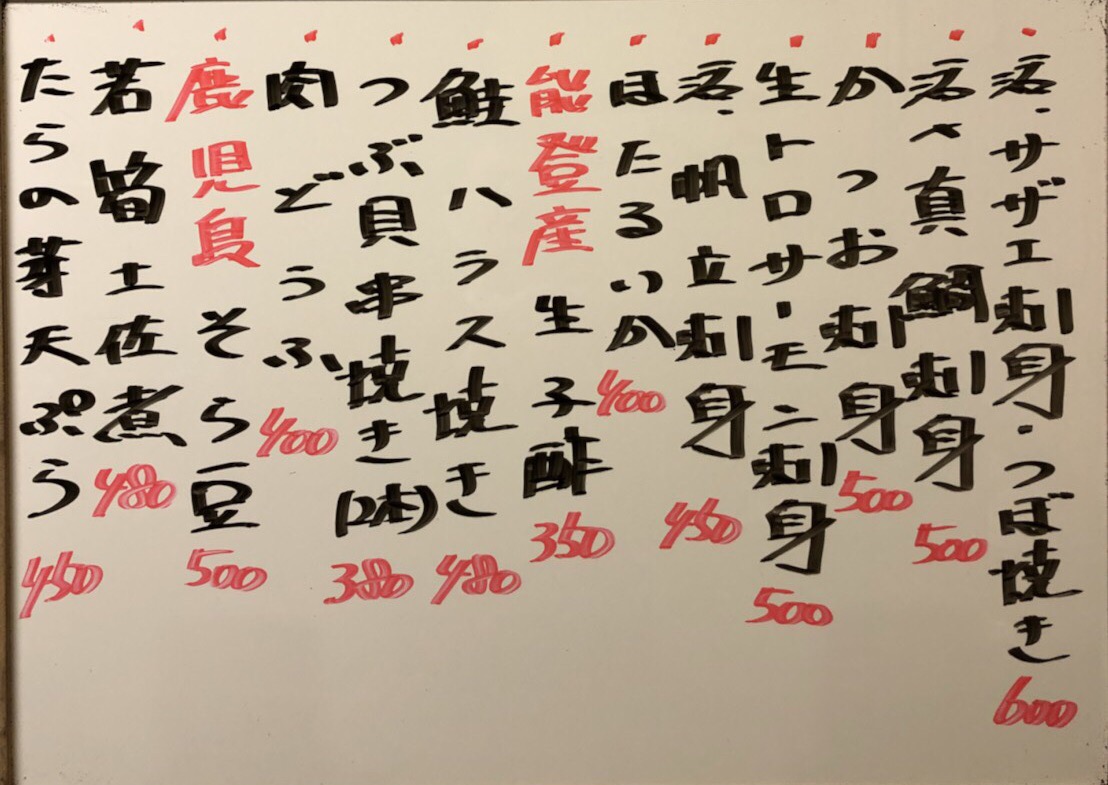 活・サザエ刺身・つぼ焼き 600
活〆真鯛刺身 500
かつお刺身 500
生トロサーモン刺身 500
活・帆立刺身 450
ほたるいか 400
能登産 生子酢 350
鮭ハラス焼き 480
つぶ貝串焼き(2本) 380
肉どうふ 400
鹿児島 そら豆 500
若筍土佐煮 480
たらの芽天ぷら 450